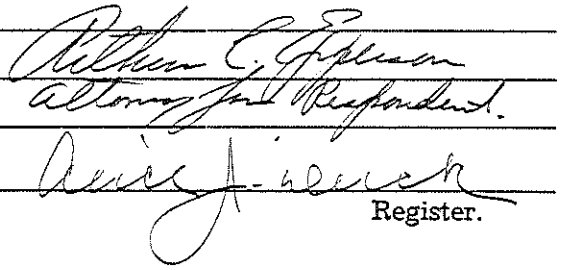 Arthur C. Epperson
Attorney for Respondent.
Alice J. Duck
Register.